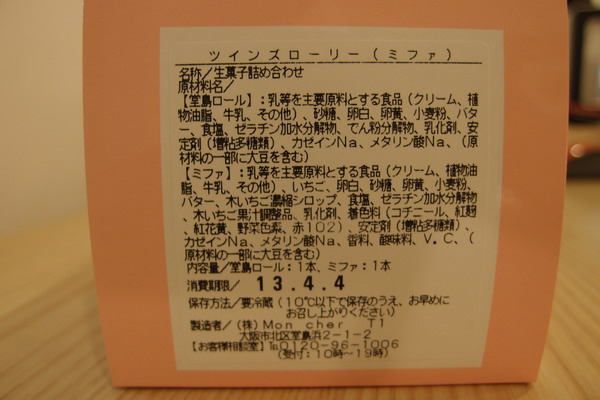 ツインズローリー(ミファ)
名称/生菓子詰め合わせ
原材料名/
【堂島ロール】:乳等を主要原料とする食品(クリーム、植
物油脂、牛乳、その他)、砂糖、卵白、卵黄、小麦粉、バタ
ー、食塩、ゼラチン加水分解物、でん粉分解物、乳化剤、安
定剤(増粘多糖類)、カゼインNa、メタリン酸Na、(原
材料の一部に大豆を含む)
【ミファ】:乳等を主要原料とする食品(クリーム、植物油
脂、牛乳、その他)、いちご、卵白、砂糖、卵黄、小麦粉、
バター、木いちご濃縮シロップ、食塩、ゼラチン加水分解物
、木いちご果汁調整品、乳化剤、着色料(コチニール、紅麹
、紅花黄、野菜色素、赤102)、安定剤(増粘多糖類)、
カゼインNa、メタリン酸Na、香料、酸味料、V.C、(
原材料の一部に大豆を含む)
内容量/堂島ロール:1本、ミファ:1本
消費期限/ 13.4.4
保存方法/要冷蔵(10℃以下で保存のうえ、お早めに
お召し上がりください)
製造者/(株)Mon cher T1
大阪市北区堂島浜2-1-2
【お客様相談室】℡0120-96-1006
(受付:10時~19時)